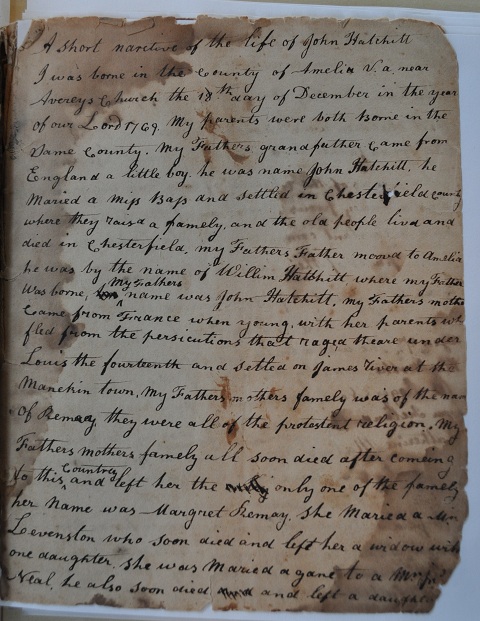 A short naretive of the life of John Hatchitt
I was borne in the County of Amelia V.a near
Avereys Church the 18th day of December in the year
of our Lord 1769. My parents were both borne in the
Same County. My Fathers grandfather Came from
England a little boy. he was name John Hatchitt, he
Maried a Miss Bass and settled in Chesterfield county
where they raisd a famely, and the old people livd and
died in Chesterfield, my Fathers Father moovd to Amelia
he was by the name of Willim Hatchitt where my Father
was borne, My Fathers name was John Hatchitt, my Fathers mother
Came from France when young, with her parents who
fled from the persicutions that raged theare under
Louis the fourteenth and setled on James River at the
Manekin town. My Fathers mothers famely was of the name
Of Remay they were all of the protestent religion. My
Fathers mothers famely all soon died after comeing
to this Country and left her the only one of the famely
her Name was Margret Remay. She Maried a Mr
Levenston who soon died and left her a widow with
one daughter. She was Maried agane to a Mr
Neal, he also soon died and left a daughter